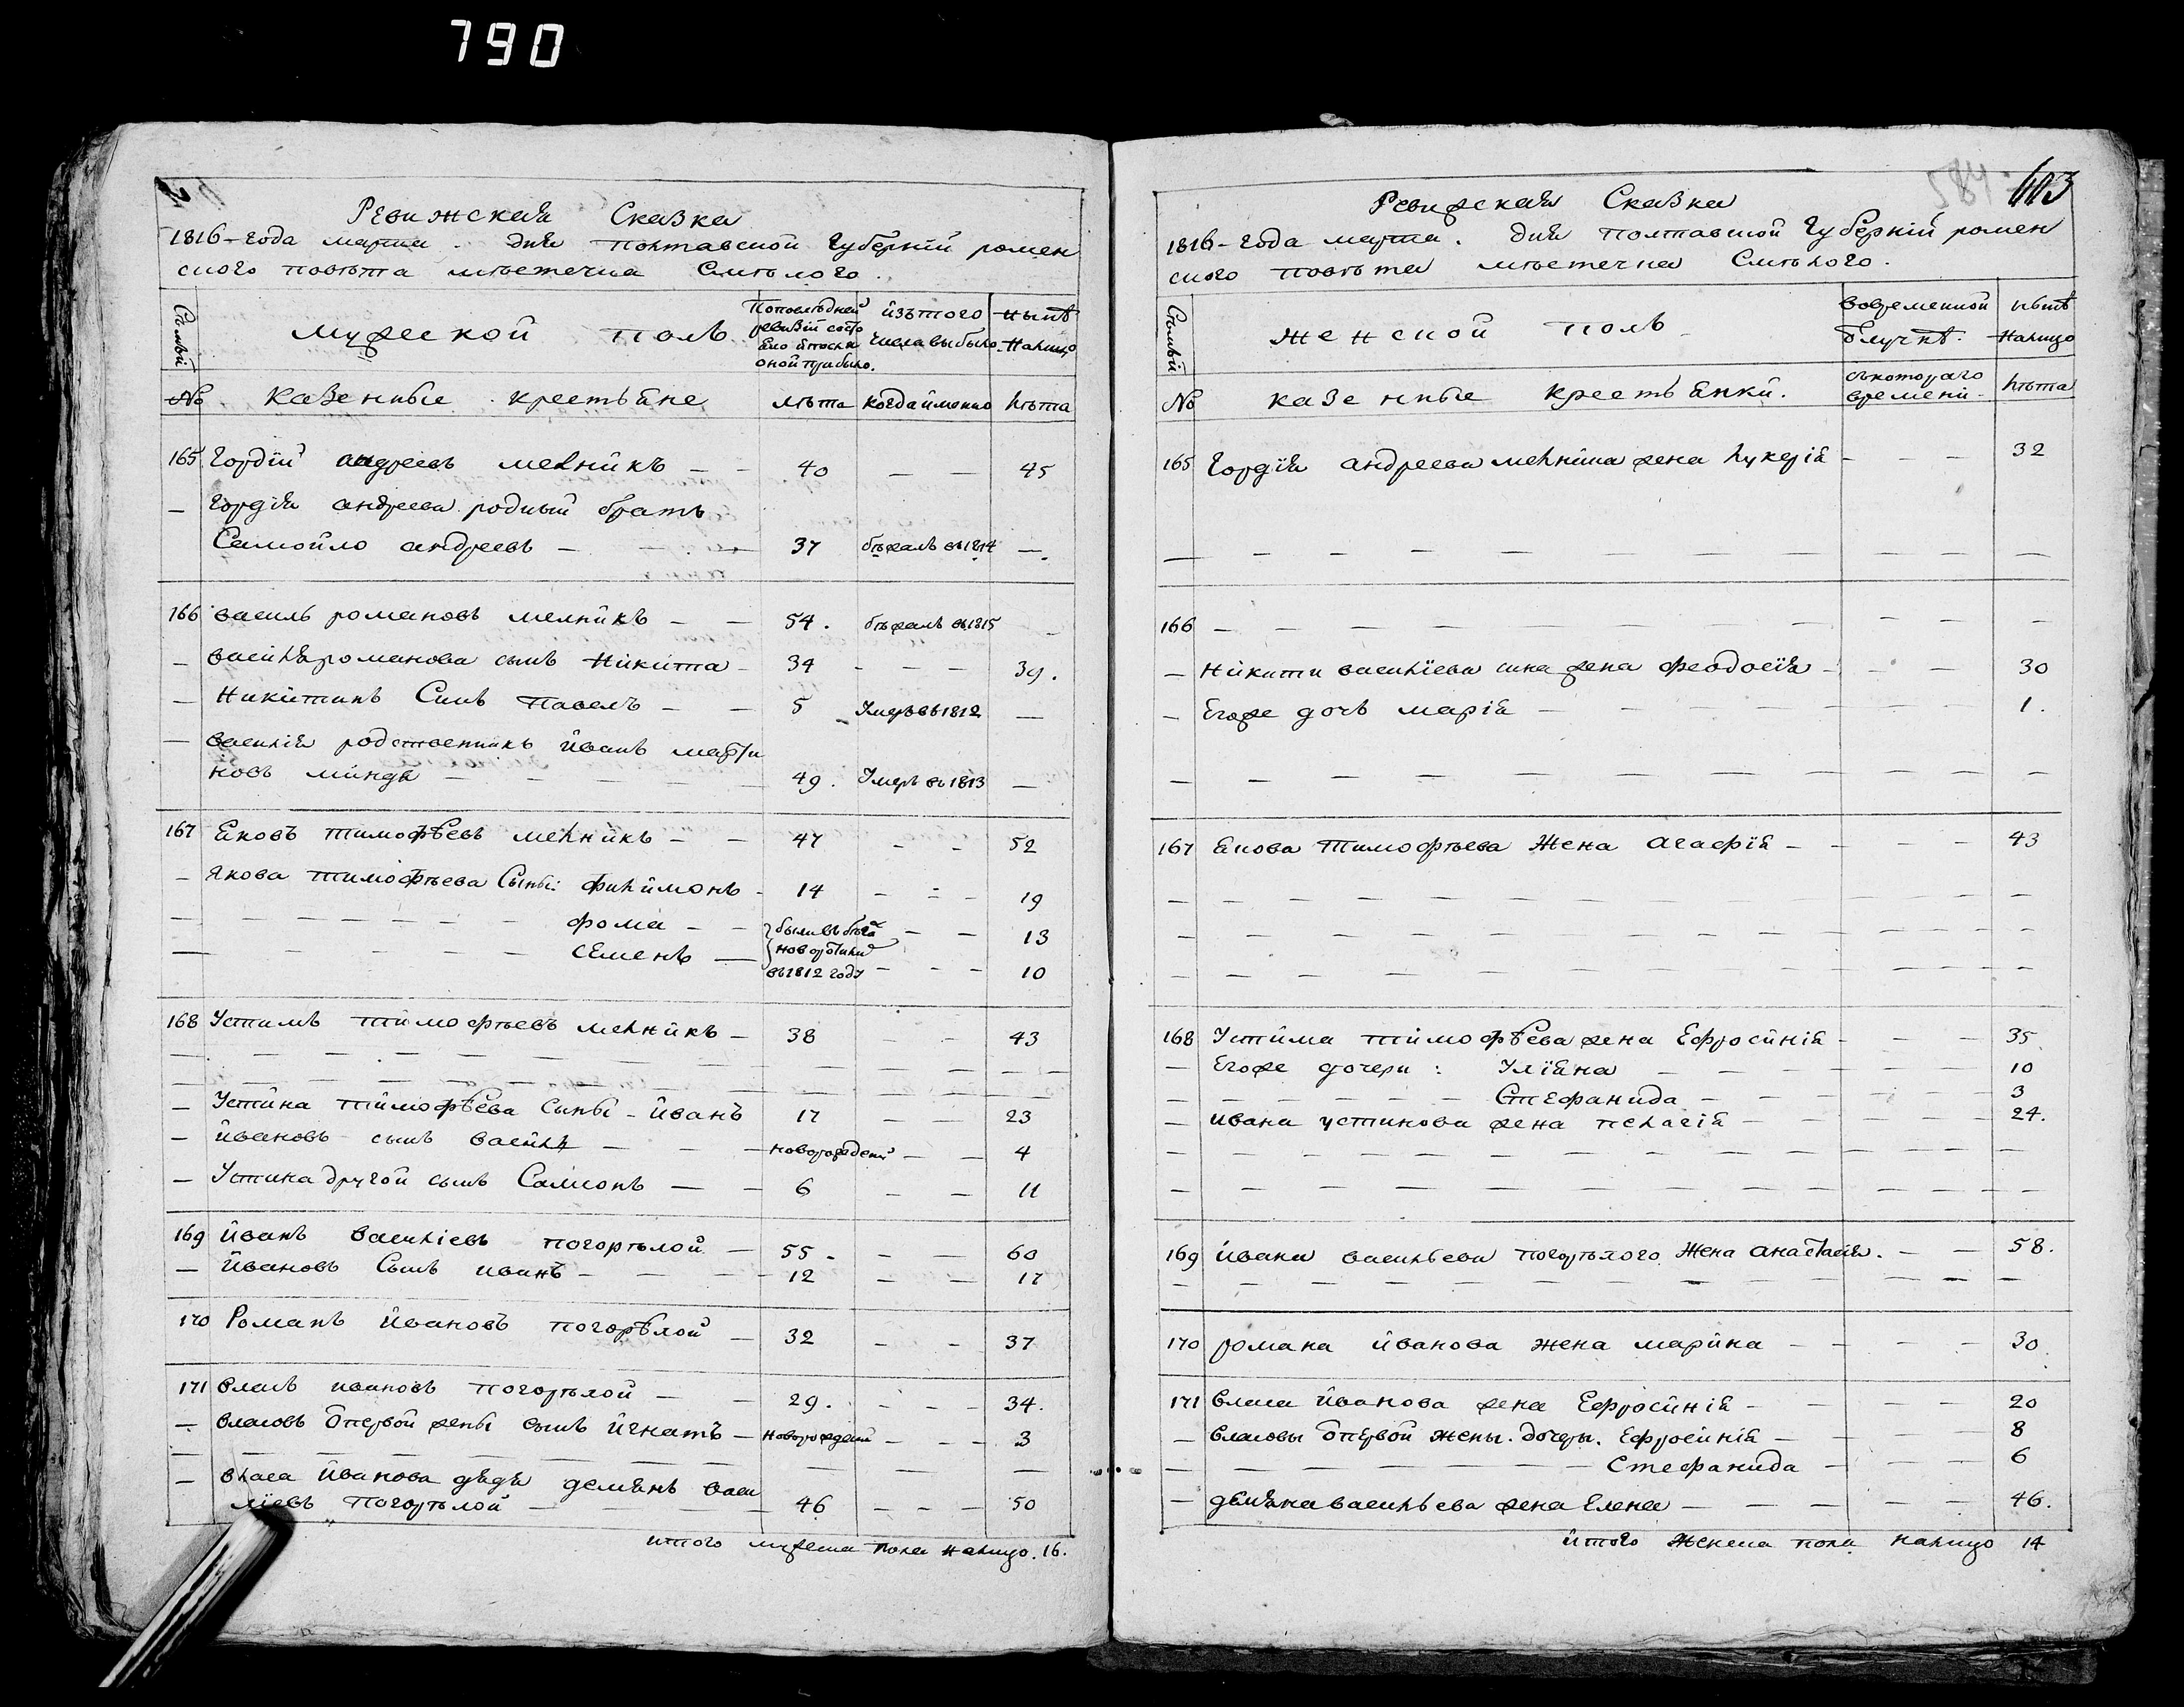 790
Ревижская Сказка
1816-года марта. дня полтавской губерній ромен
ского повѣта мѣстечка Смѣлого.
Съмьй
мужеской полъ
Попослѣдней
ревизій состо
яло йпосли
оной прибыло.
йзътого
числа выбыло
нынѣ
налицо
№
казенные крестьяне
лѣта
когда йменно
лѣта
165 Гордій андреевъ мелникъ — — 40 — — 45
— Гордія андреева родный братъ
Самойло андреевъ — — 37 бѣжалъ въ 1814 —
166 василь романовъ мелникъ — — 54. бѣжалъ въ 1815 —
— василя романова сынъ Никита — 34 — — — 39.
— Никитинъ Сынъ Павелъ — — 5 Умеръ въ 1812 —
— василія родственникъ йванъ марти
новъ миндя — — — 49. Умеръ въ 1813 —
167 Яковъ тимофѣевъ мелникъ — — 47 — — 52
— Якова тимофѣева Сыны: филимонъ — 14 — — — 19
— — — — — фома — — были в
новорожд
въ 1812 году
— — 13
— — — — — семенъ — — — — 10
168 Устимъ тимофѣевъ мелникъ — 38 — — 43
— Устина тимофѣева Сыны — йванъ 17 — — 23
— йвановъ сынъ василь — — — новорожденъ — — 4
— Устина другой сынъ Самсонъ — — 6 — — 11
169 йванъ василіевъ погорѣлой — 55 — — — 60
— йвановъ Сынъ иванъ — — — 12 — — 17
170 Романъ йвановъ погорѣлой — 32 — — 37
171 власъ ивановъ погорѣлой — — 29. — — — 34.
— власовъ ѿпервой жены сынъ йгнатъ — новорожденъ — — — 3
— власа йванова дядя демянъ васи
лїевъ погорѣлой — — — 46 — — — 50
итого мужеска пола налицо. 16.
584
603
Ревижская Сказка
1816-года марта. дня полтавской губерній ромен
ского повѣта мѣстечка Смѣлого.
Съмьй
женской полъ
вовременной
ѿлучкѣ.
нынѣ
налицо
№
казенные крестьянки.
съкотораго
времени
лѣта
165 Гордія андреева мелника жена лукерія — — — 32
166 — — — — — — — —
— Никити василіева сина жена феодосія — — — 30
— Егоже дочь марія — — — — 1.
167 Якова тимофѣева жена агафія — — — — 43
168 Устима тимофѣева жена Ефросинія — — — 35.
— Егоже дочери: Уліяна — — — — 10
— — — — — Стефанида — — — 3
— ивана устинова жена пелагія — — — — 24.
169 йвана васильева погорѣлого жена анастасія. — — 58.
170 романа йванова жена марина — — — — 30.
171 власа йванова жена Ефросинія — — — — 20
— власовы ѿпервой жены. дочеры. Ефросинія — — — 8
— — — — — — Стефанида — — — 6
— демяна васильева жена Елена — — — — — 46.
йтого женска пола налицо 14